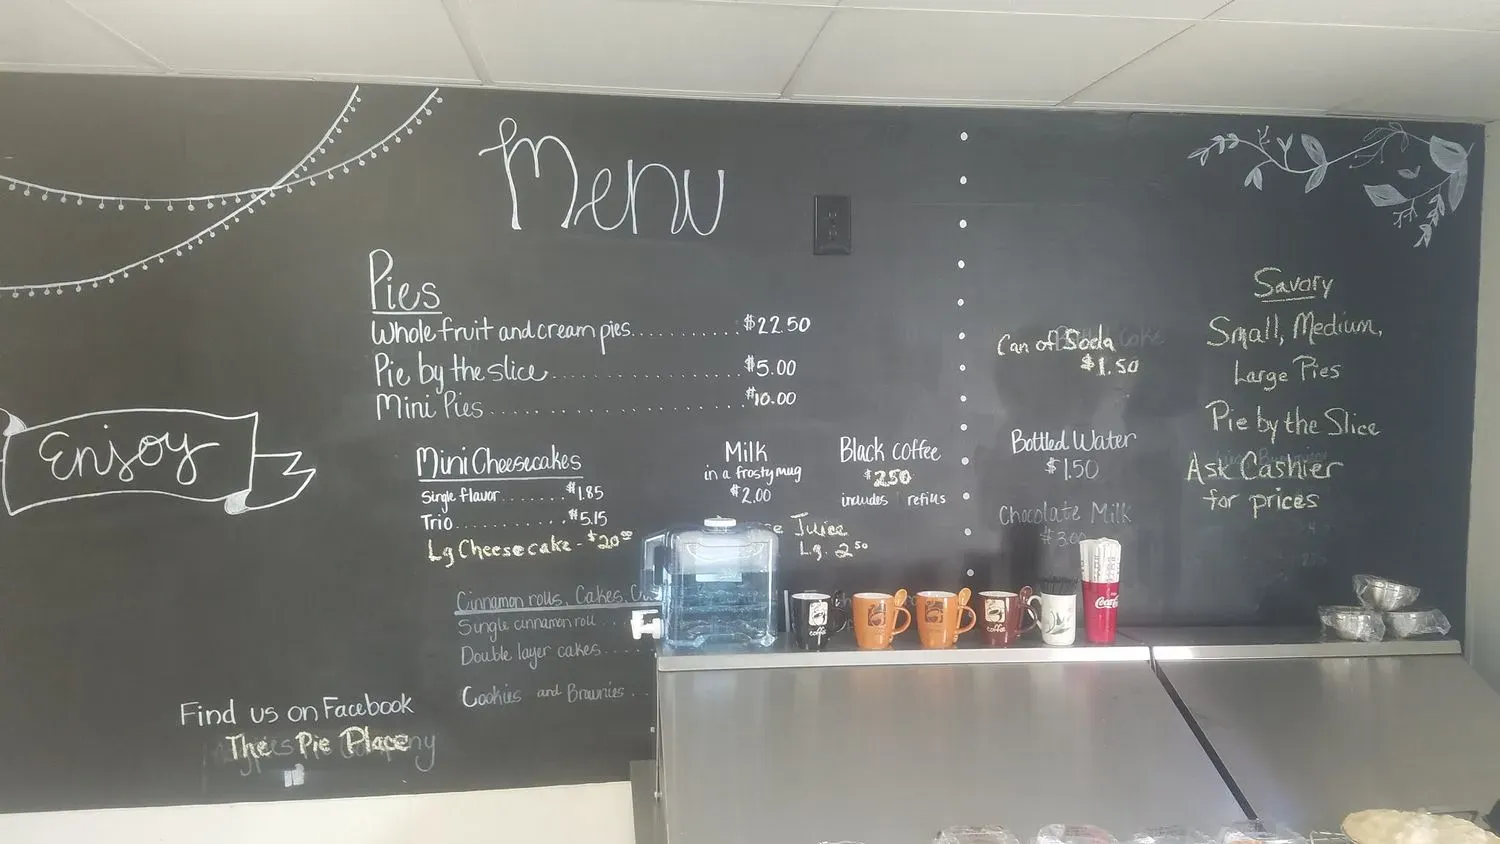 Menu
Pies
Whole fruit and cream pies.......... $22.50
Pie by the slice.................... $5.00
Mini Pies........................... $10.00
Enjoy
Mini Cheesecakes
Single flavor....... $1.85
Trio............ $5.15
Lg Cheesecake - $20.00
Milk
in a frosty mug
$2.00
Black coffee
$2.50
includes refills
Juice
Lg. 2.50
Cinnamon rolls, Cakes,
Single cinnamon roll...
Double layer cakes.....
Cookies and Brownies...
Find us on Facebook
The Pie Place
Can of Soda
$1.50
Bottled Water
$1.50
Chocolate Milk
$3.00
Savory
Small, Medium,
Large Pies
Pie by the Slice
Ask Cashier
for prices
coffee
coffee
Coca-Cola